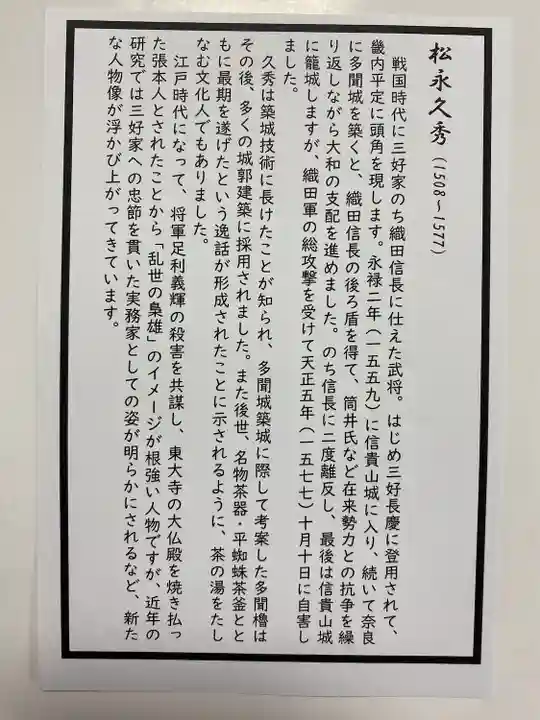 松永久秀（1508～1577）
戦国時代に三好家のち織田信長に仕えた武将。はじめ三好長慶に登用されて、
畿内平定に頭角を現します。永禄二年（一五五九）に信貴山城に入り、続いて奈良
に多聞城を築くと、織田信長の後ろ盾を得て、筒井氏など在来勢力との抗争を繰
り返しながら大和の支配を進めました。のち信長に二度離反し、最後は信貴山城
に籠城しますが、織田軍の総攻撃を受けて天正五年（一五七七）十月十日に自害し
ました。
久秀は築城技術に長けたことが知られ、多聞城築城に際して考案した多聞櫓は
その後、多くの城郭建築に採用されました。また後世、名物茶器・平蜘蛛茶釜とと
もに最期を遂げたという逸話が形成されたことに示されるように、茶の湯をたし
なむ文化人でもありました。
江戸時代になって、将軍足利義輝の殺害を共謀し、東大寺の大仏殿を焼き払っ
た張本人とされたことから「乱世の梟雄」のイメージが根強い人物ですが、近年の
研究では三好家への忠節を貫いた実務家としての姿が明らかにされるなど、新た
な人物像が浮かび上がってきています。